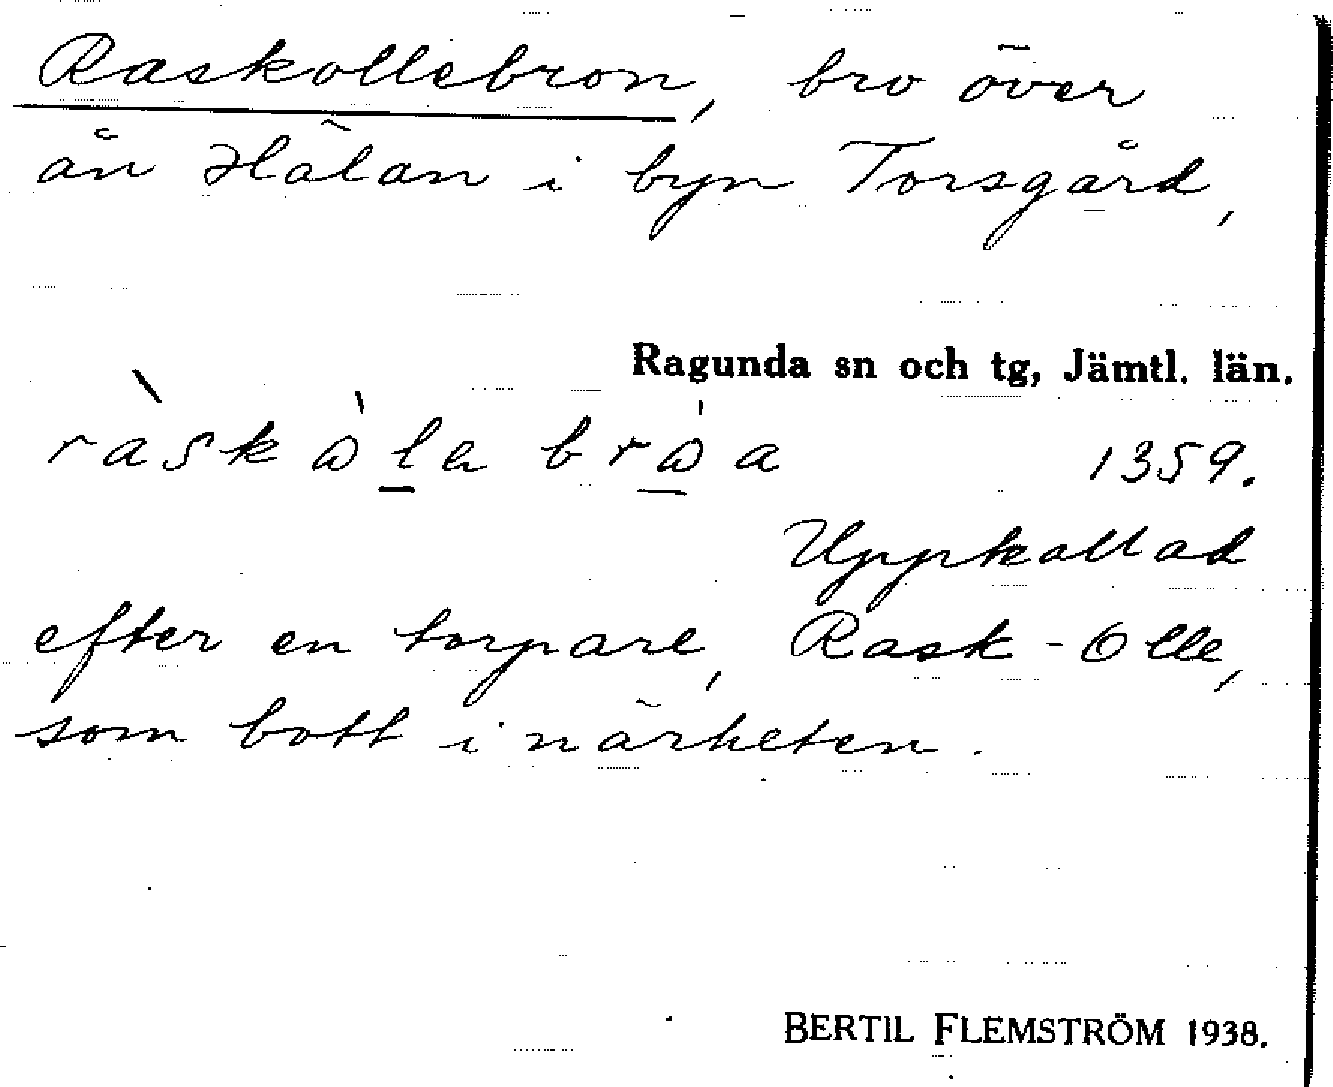 Raskollebron, bro över
ån Hälån i byn Torsgård,
Ragunda sn och tg, Jämtl. län.
1359.
Uppkallad
efter en torpare, Rask-Olle,
som bott i närheten.
BERTIL FLEMSTRÖM 1938.